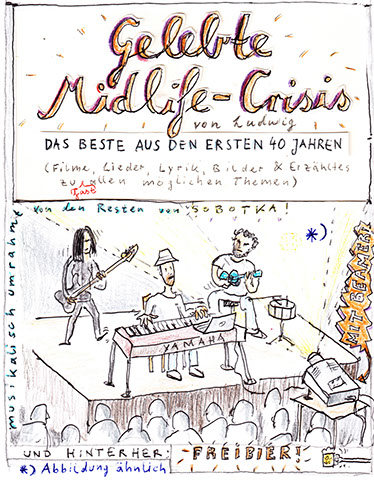 Gelebte
Midlife-Crisis
von Ludwig
DAS BESTE AUS DEN ERSTEN 40 JAHREN
(Filme, Lieder, Lyrik, Bilder & Erzähltes
zu fast allen möglichen Themen)
musikalisch umrahmt
von den Resten von SOBOTKA!
*)
MIT BEAMER!
YAMAHA
UND HINTERHER: FREIBIER!
*) Abbildung ähnlich